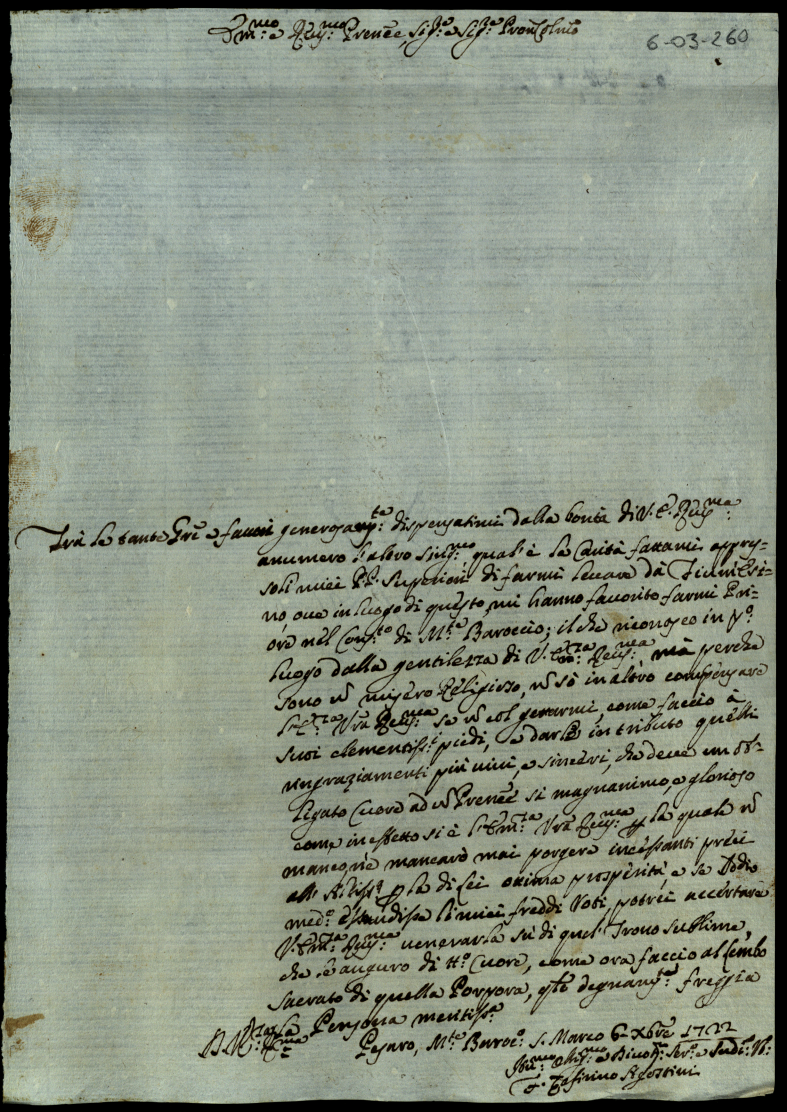 Em.mo e Rev.mo Prencê, Sig.re e Sig.re Pron Col.mo
6-03-260
Trà le tante Grê e favori generosam.te dispensatimi dalla bontà di V. E. Rev.ma
anumero l'altro sing.mo, qual'è la Carità fattami appres-
soli miei PP. Superiori di farmi levare dà
no ove in luogo di questo, mi hanno favorito farmi Pri-
ore nel Con.to di M.te Baroccio; il che riconosco in p.o
luogo dalla gentilezza di V. Em.za Rev.ma, mà perche
sono ũ misero Religioso, ñ sò in altro compensare
l'E.za Vrã Rev.ma se ñ col gettarmi, come faccio à
suoi clementiss.i piedi, e darle in tributo quelli
ringraziamenti più vivi, e sinceri, che deve un ob-
ligato Cuore ad ũ Prencê si magnanimo, e glorioso
come in effetto si è l'Em.za Vrã Rev.ma la quale ñ
manco, nè mancarò mai porgere incessanti preci
all' Altiss.o la di Lei ottima prosperità, e se Iddio
med.o esaudisse li miei freddi Voti, potrei accertare
V. Em.za Rev.ma venerarla sù di quel Trono sublime,
che le auguro di tt.o Cuore, come ora faccio al Lembo
sacrato di quella Porpora, che degnam.te freggia
la Persona meritiss.a
D. V. Em.za Rev.ma
Pesaro, M.te Barroc.o S. Marco 6 Xbre 1722
Um.mo Oblig.mo e Divot.mo Ser.o e
F. Agostini